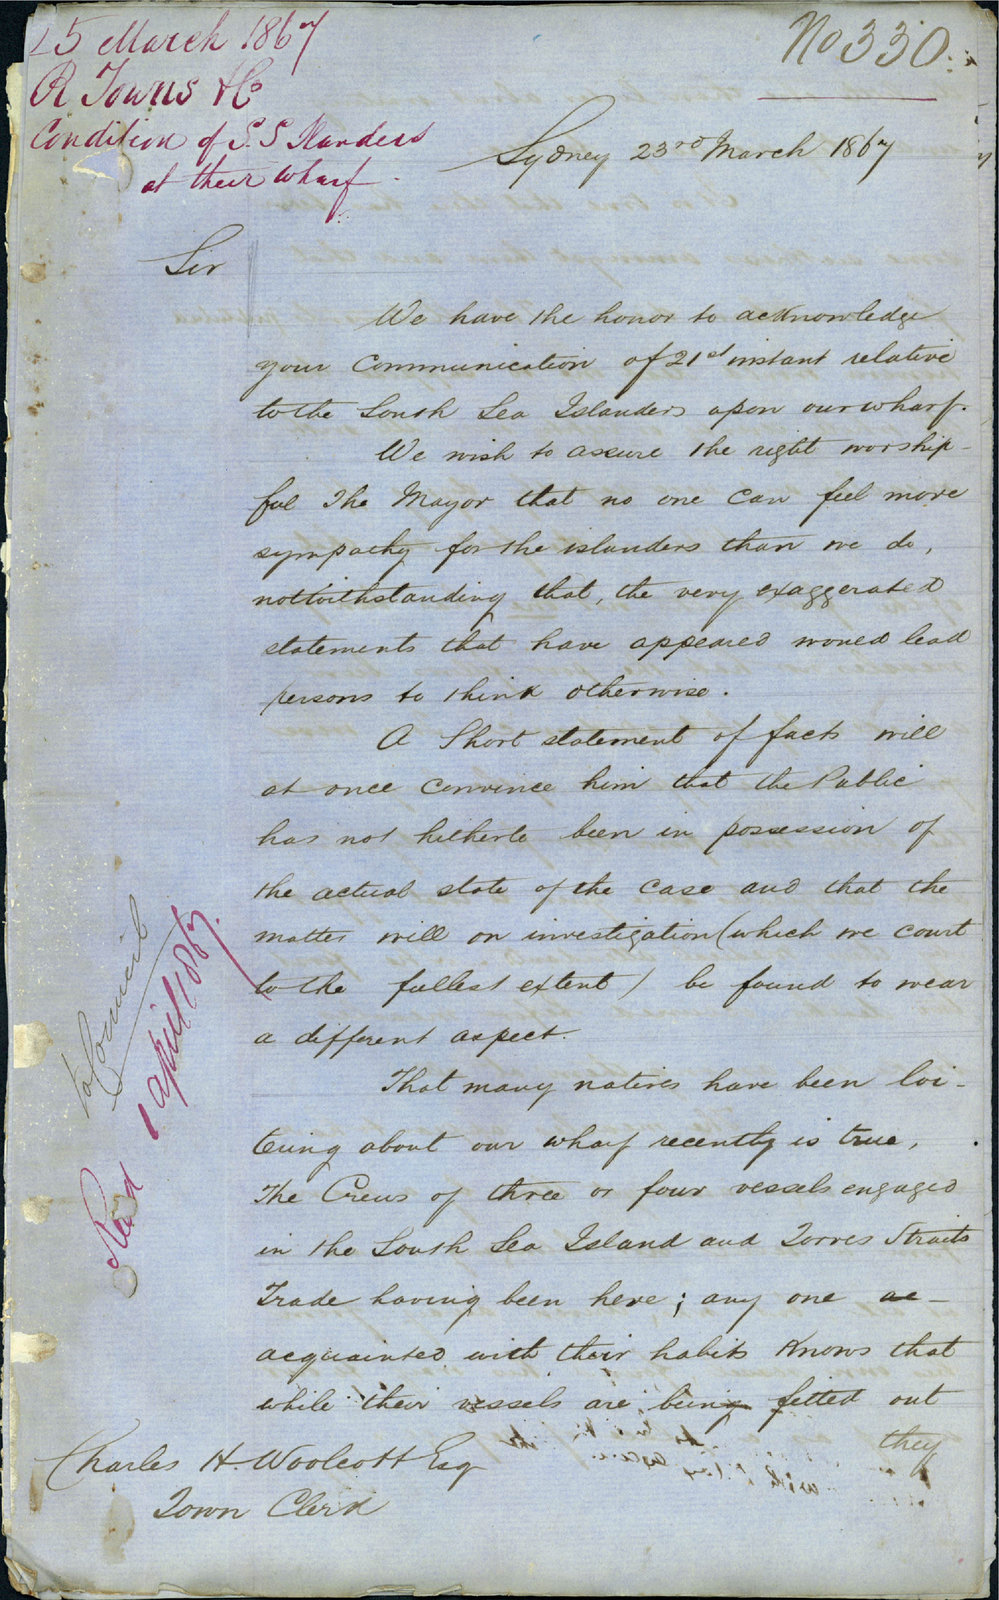 25 March 1867
R Towns & Co
Condition of S. S Islanders
at their wharf.
No 330.
Sydney 23rd March 1867
Sir
We have the honor to acknowledge
your Communication of 21st instant relative
to the South Sea Islanders upon our wharf.
We wish to assure the right worship-
ful The Mayor that no one can feel more
sympathy for the islanders than we do,
notwithstanding that, the very exaggerated
statements that have appeared would lead
persons to think otherwise.
A Short statement of facts will
at once convince him that the Public
has not hitherto been in possession of
the actual state of the case and that the
matter will on investigation (which we court
to the fullest extent) be found to wear
a different aspect.
That many natives have been loi-
tering about our wharf recently is true,
The Crews of three or four vessels engaged
in the South Sea Island and Torres Straits
Trade having been here; any one ac-
acquainted with their habits knows that
while their vessels are being fitted out
they
Charles H. Woolcott Esq
Town Clerk
To Council
Read 1 April 1867.